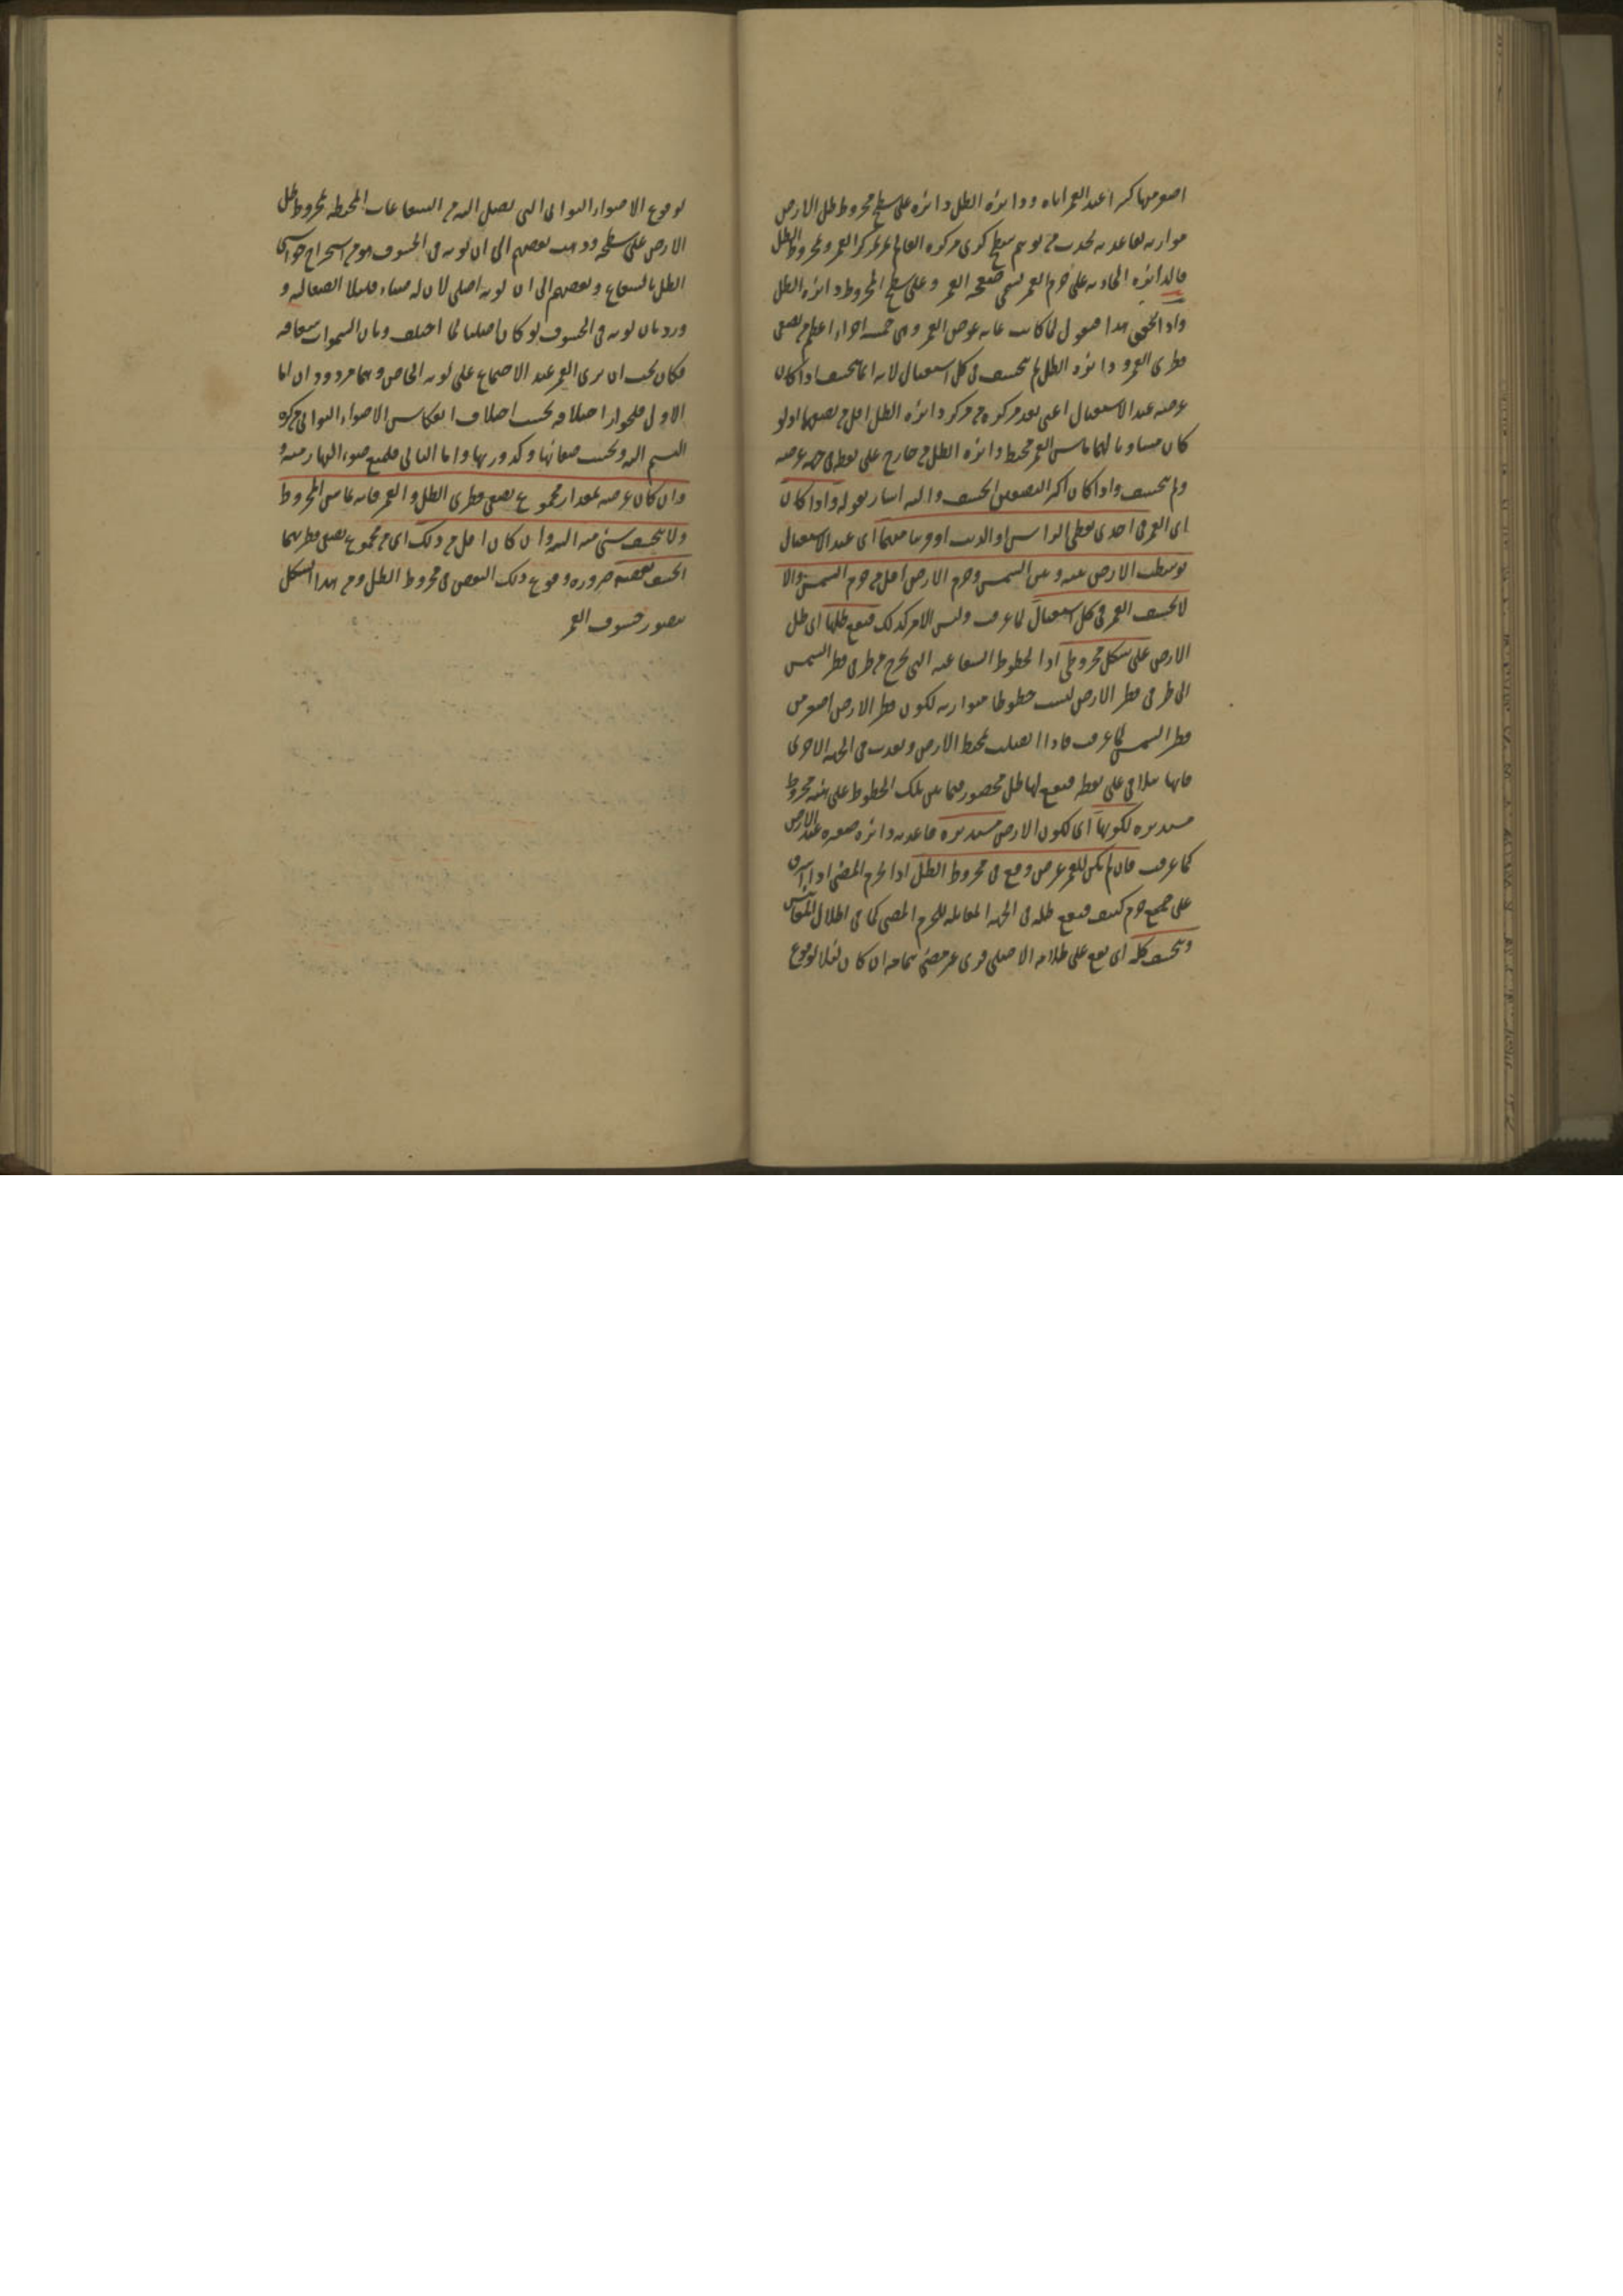 اصغر منها كثيرا عند القمر اياه ودائرة الظل دائرة على سطح مخروط ظل الارض
موازية لقاعدته تحدث من توهم سطح كرى مركزه العالم يمر بمركز القمر ومخروط الظل
فالدائرة الحادثة على جرم القمر تسمى صفحة القمر وعلى سطح المخروط دائرة الظل
واذا تحقق هذا فنقول لما كانت غاية عرض القمر وهى خمسة اجزاء اعظم من نصفى
قطرى القمر ودائرة الظل لم ينخسف فى كل استقبال لانه انما ينخسف اذا كان
عرضه عند الاستقبال اعنى بعد مركزه من مركز دائرة الظل اقل من نصفيهما اذ لو
كان مساويا لهما ماس القمر محيط دائرة الظل من خارج على نقطة فى جهة عرضه
ولم ينخسف واذا كان اكثر من النصفين لم ينخسف واليه اشار بقوله واذا كان
اى القمر فى احدى نقطتى الراس او الذنب او قريبا منهما اى عند الاستقبال
توسطت الارض بينه وبين الشمس وجرم الارض اقل من جرم الشمس والا
لانخسف القمر فى كل استقبال لما عرفت وليس الامر كذلك فيقع ظلها اى ظل
الارض على شكل مخروطى اذ الخطوط الشعاعية التى تخرج من طرفى قطر الشمس
الى طرفى قطر الارض ليست خطوطا متوازية لكون قطر الارض اصغر من
قطر الشمس لما عرفت فاذا اتصلت بمحيط الارض ونفذت فى الجهة الاخرى
فانها تتلاقى على نقطة فيقع لها ظل محصور فيما بين تلك الخطوط على هيئة مخروط
مستديرة لكونها اى لكون الارض مستديرة قاعدته دائرة صغيرة عند الارض
كما عرفت فان لم يكن للقمر عرض وقع فى مخروط الظل اذ الجرم المضئ اذا اشرق
على جميع جرم كثيف فيقع ظله فى الجهة المقابلة للجرم المضئ كما فى اظلال المقاييس
وينخسف كله اى يقع على ظلامه الاصلى فيرى غير مضئ بتمامه ان كان ثقلا لوقوع
لوقوع الاضواء الثوانى التى تصل اليه من الشعاعات المحيطة بمخروط ظل
الارض على سطحه وذهب بعضهم الى ان لونه فى الخسوف هو من امتزاج حواشى
الظل بالشعاع وبعضهم الى ان لونه اصلى لان له ضياء قليلا لصقالته و
ورد بان لونه فى الخسوف لو كان اصليا لما اختلف وبان السموات شفافة
فكان يجب ان يرى القمر عند الاجتماع على لونه الخاص وهما مردودان اما
الاول فلجواز اختلافه بحسب اختلاف انعكاس الاضواء الثوانى من كرة
النسيم اليه وبحسب صفائها وكدورتها واما الثانى فلمنع ضوء النهار منه و
وان كان عرضه بمقدار مجموع نصفى قطرى الظل والقمر فانه يماس المخروط
ولا ينخسف شئ منه البتة وان كان اقل من ذلك اى من مجموع نصفى قطريهما
انخسف بعضه ضرورة وقوع ذلك البعض فى مخروط الظل ومن هذا الشكل
يتصور خسوف القمر